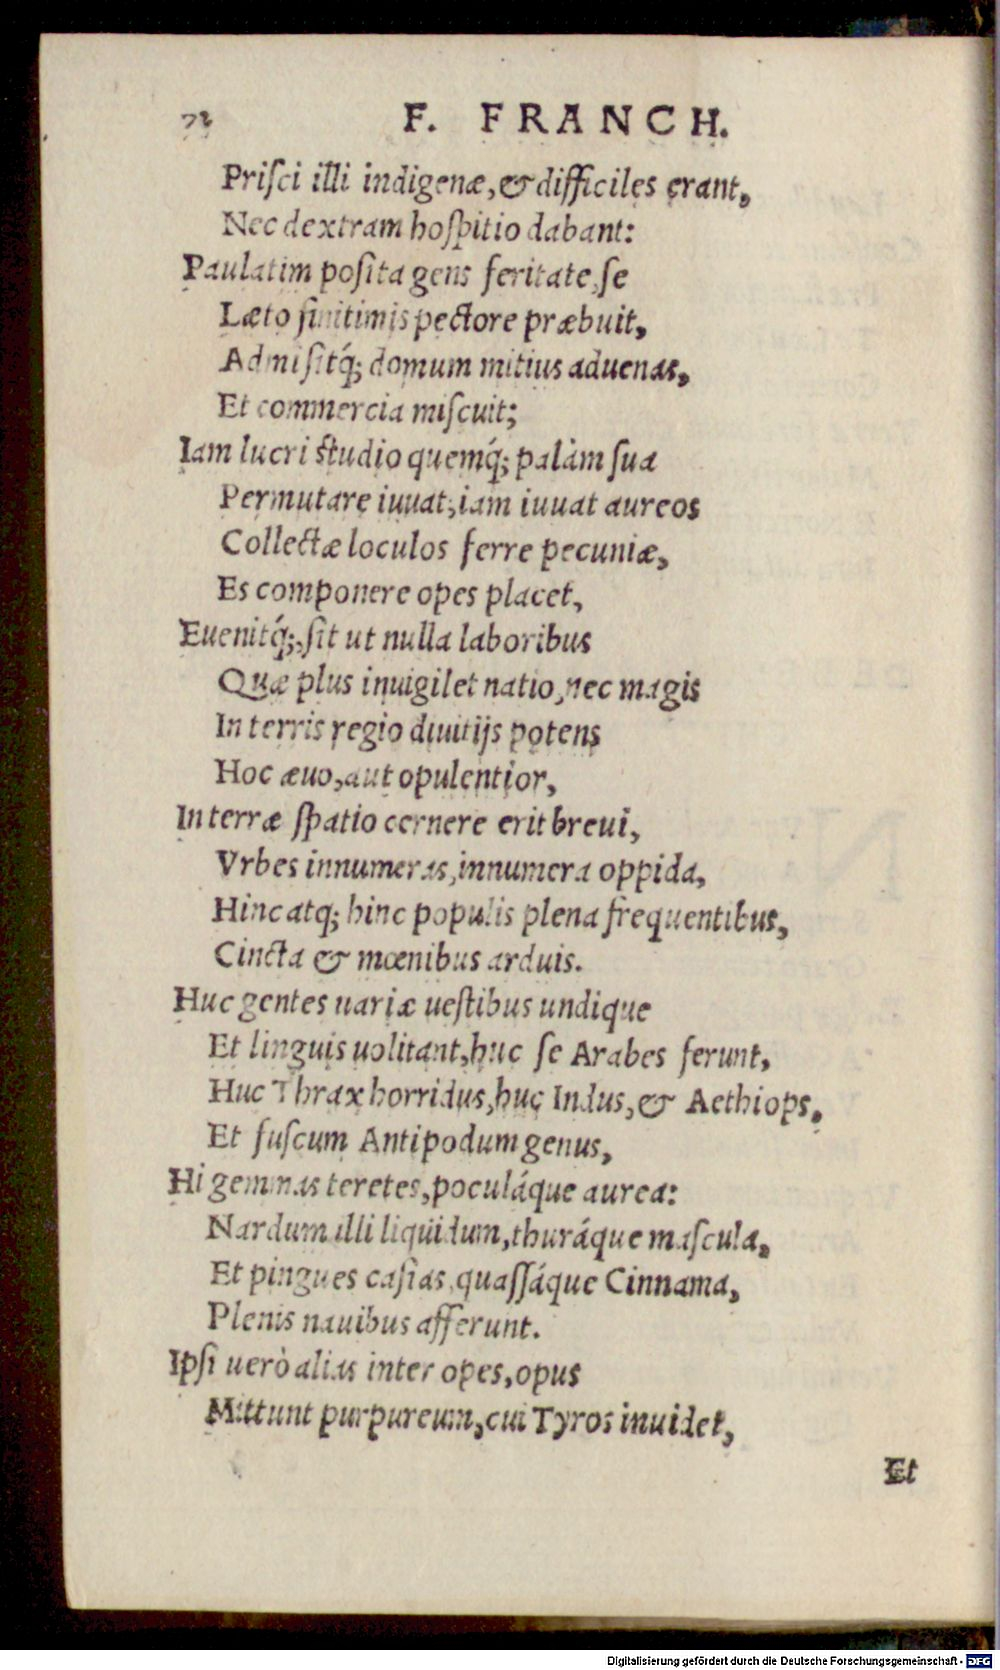 72 F. FRANCH.
Priſci illi indigenæ, & difficiles erant,
Nec dextram hoſpitio dabant:
Paulatim poſita gens feritate, ſe
Læto finitimis pectore præbuit,
Admiſitq́; domum mitius aduenas,
Et commercia miſcuit;
Iam lucri ſtudio quemq́; palàm ſua
Permutare iuuat, iam iuuat aureos
Collectæ loculos ferre pecuniæ,
Es componere opes placet,
Euenitq́;, ſit ut nulla laboribus
Quæ plus inuigilet natio, nec magis
In terris regio diuitijs potens
Hoc æuo, aut opulentior,
In terræ ſpatio cernere erit breui,
Vrbes innumeras, innumera oppida,
Hinc atq; hinc populis plena frequentibus,
Cincta & mœnibus arduis.
Huc gentes uariæ ueſtibus undique
Et linguis uolitant, huc ſe Arabes ferunt,
Huc Thrax horridus, huc Indus, & Aethiops,
Et fuſcum Antipodum genus,
Hi gemmas teretes, poculáque aurea:
Nardum illi liquidum, thuráque maſcula,
Et pingues caſias, quaſſáque Cinnama,
Plenis nauibus afferunt.
Ipſi uerò alias inter opes, opus
Mittunt purpureum, cui Tyros inuidet,
Et
Digitalisierung gefördert durch die Deutsche Forschungsgemeinschaft - DFG